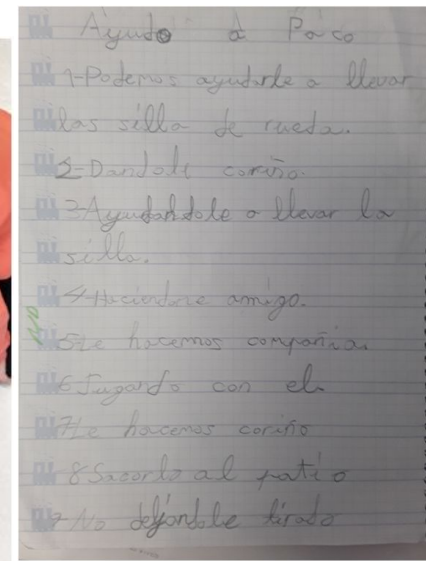 Ayudo a Paco
1-Podemos ayudarle a llevar
las silla de rueda.
2-Dandole cariño.
3-Ayudandole a llevar la
silla.
4-Haciendome amigo.
5-Le hacemos compañia
6 Jugando con el
7-Le hacemos cariño
8 Sacarlo al patio
9-No dejandole tirado